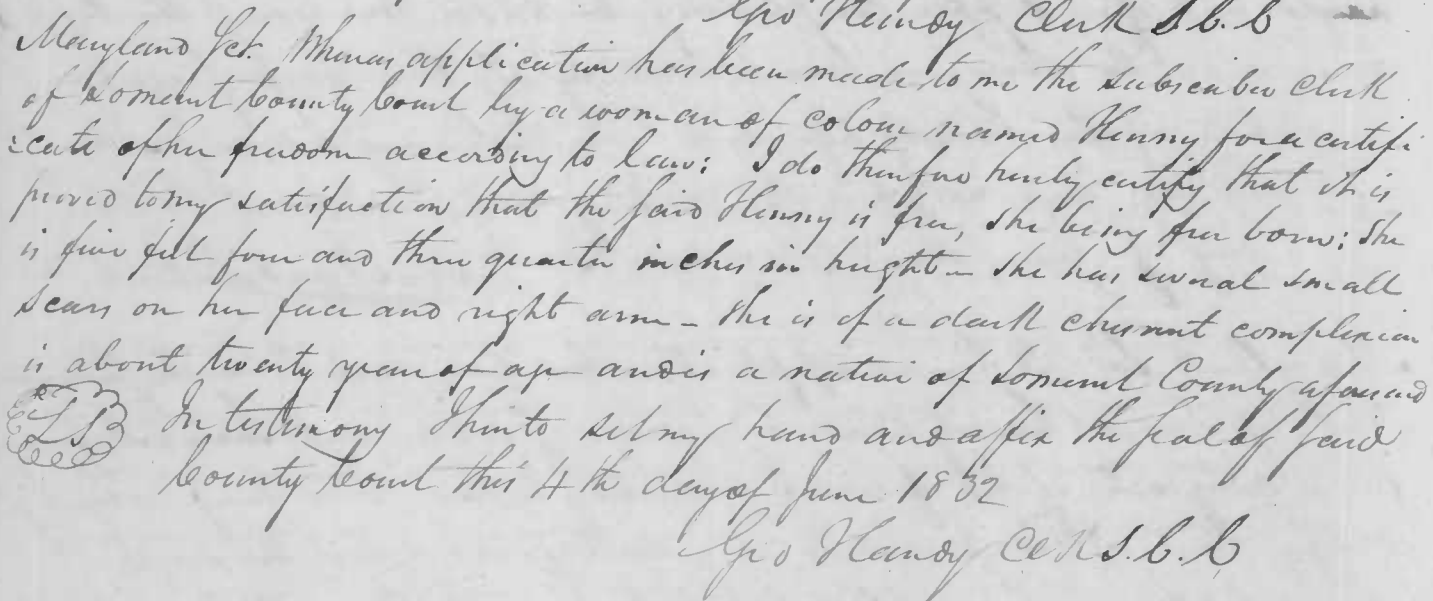 Geo Handy Clerk S.C.C
Maryland Sct. Whereas application has been made to me the subscriber clerk
of Somerset County Court by a woman of colour named Henny for a certifi
=cate of her freedom according to law: I do therefore hereby certify that it is
proved to my satisfaction that the said Henny is free, she being free born: she
is five feet four and three quarter inches in height - she has several small
scars on her face and right arm - she is of a dark chesnut complexion
is about twenty years of age and is a native of Somerset County aforesaid
LS In testimony I hereto set my hand and affix the seal of said
County Court this 4th day of June 1832
Geo Handy Clk S.C.C